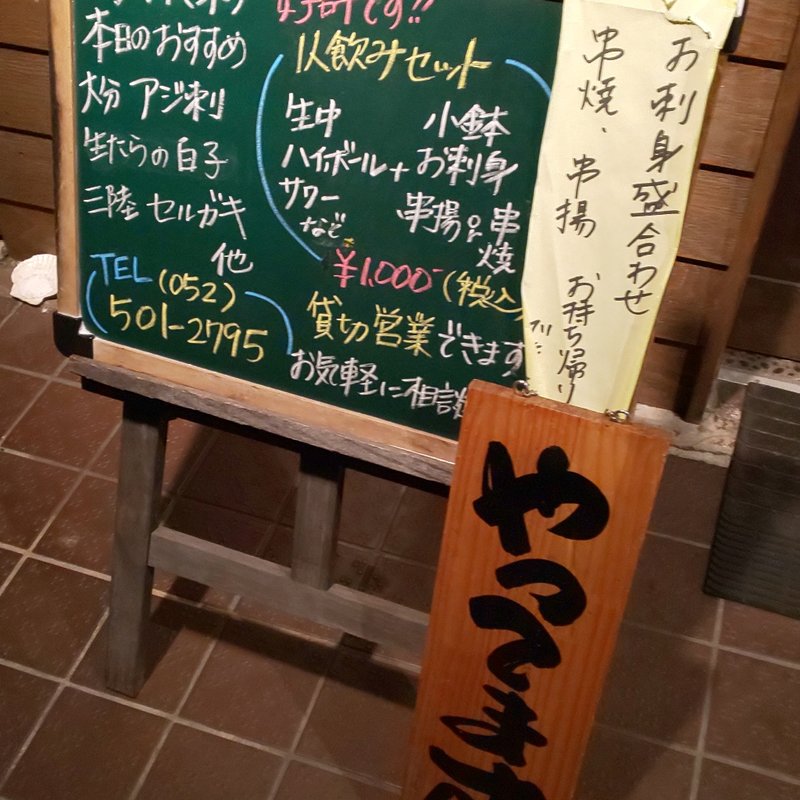 本日のおすすめ
大分 アジ刺
生たらの白子
三陸 セルガキ
他
TEL (052)
501-2795
好評です!!
1人飲みセット
生中 小鉢
ハイボール + お刺身
サワー 串揚 or 串焼
など
¥1,000- (税込)
貸切営業できます
お気軽に相談
お刺身盛合わせ
串焼、串揚 お持ち帰り
やってます